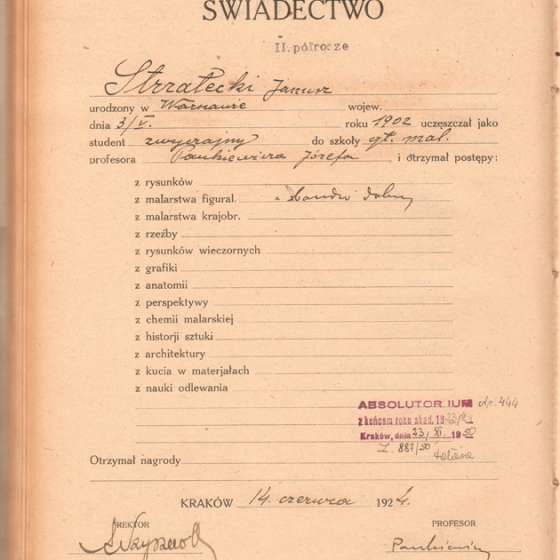 ŚWIADECTWO
II. półrocze
Strzałecki Janusz
urodzony w Warszawie wojew.
dnia 3/V. roku 1902 uczęszczał jako
student zwyczajny do szkoły gł. mal.
profesora Pankiewicza Józefa i otrzymał postępy:
z rysunków
z malarstwa figural. bardzo dobry
z malarstwa krajobr.
z rzeźby
z rysunków wieczornych
z grafiki
z anatomii
z perspektywy
z chemii malarskiej
z historji sztuki
z architektury
z kucia w materjałach
z nauki odlewania
ABSOLUTORIUM Nr. 444
z końcem roku akad. 1923/24
Kraków, dnia 23/XI. 1950
L. 887/50
Otrzymał nagrody
KRAKÓW 14. czerwca 1924.
REKTOR PROFESOR
Pankiewicz